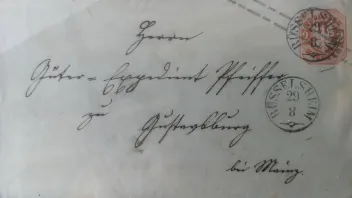 Herrn
RÜSSELSHEIM
Güter-Expedient Pfeiffer
zu
RÜSSELSHEIM
Gustavsburg
bei Mainz.